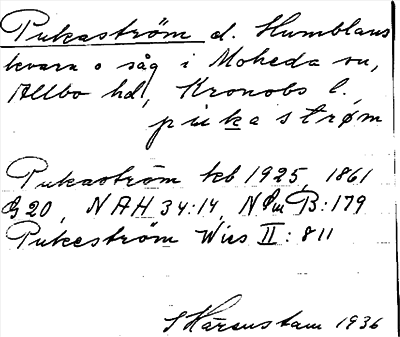 Pukaström d. Humblaus
kvarn o såg i Moheda sn,
Allbo hd, Kronobs l.,
pukastrøm
Pukaström kb 1925, 1861
G20, NAH 34:14, NSm B:179
Pukeström Wies II:811
S Härenstam 1936